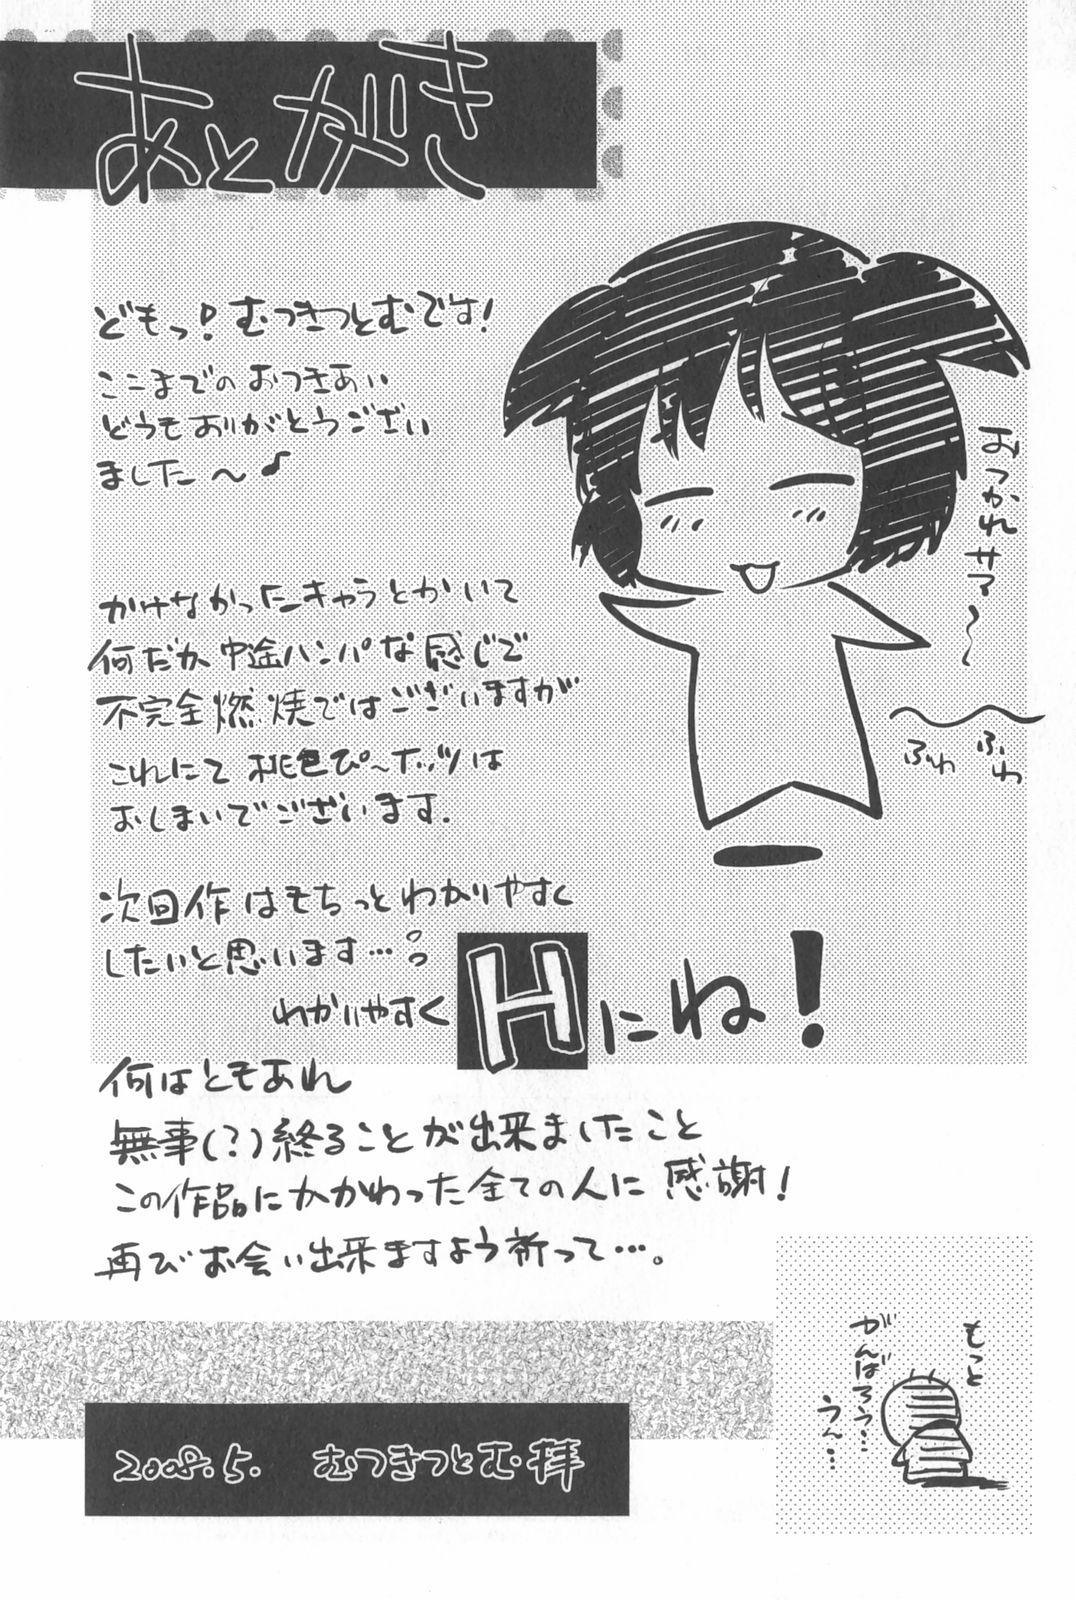 あとがき
どもっ！むつきつとむです！
ここまでのおつきあい
どうもありがとうござい
ました〜♪
おつかれサマ〜
ふわ
ふわ
かけなかったキャラとかいて
何だか中途ハンパな感じで
不完全燃焼ではございますが
これにて桃色ぴ〜ホッツは
おしまいでございます.
次回作はもちっとわかりやすく
したいと思います…。
わかりやすく
Hにね！
何はともあれ
無事(？)終ることが出来ましたこと
この作品にかかわった全ての人に感謝！
再びお会い出来ますよう祈って…。
もっと
がんばろう…
うん…
2008.5. むつきつとむ拝